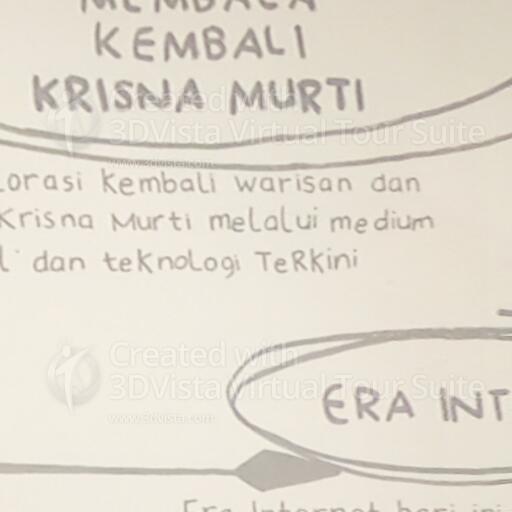 MEMBACA
KEMBALI
KRISNA MURTI
Created with
3DVista Virtual Tour Suite
www.3dvista.com
orasi kembali warisan dan
Krisna Murti melalui medium
l dan teknologi Terkini
Created with
3DVista Virtual Tour Suite
www.3dvista.com
ERA INT
Era Internet hari ini